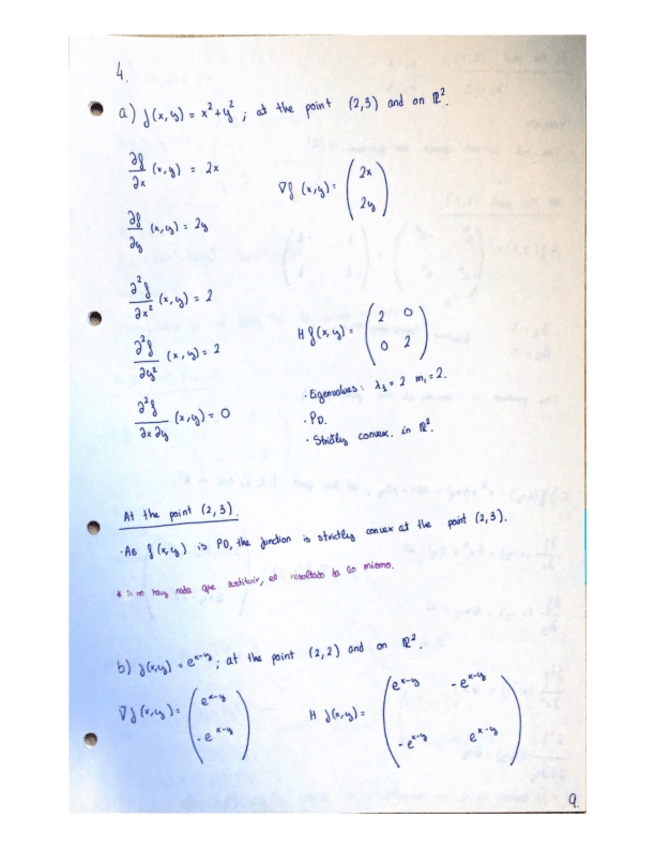 4.
a) f(x,y) = x²+y²; at the point (2,3) and on ℝ².
∂f/∂x (x,y) = 2x
∇f (x,y) = (2x 2y)
∂f/∂y (x,y) = 2y
∂²f/∂x² (x,y) = 2
H f(x,y) = (2 0 0 2)
∂²f/∂y² (x,y) = 2
· Eigenvalues: λ₁ = 2 m₁ = 2.
∂²f/∂x∂y (x,y) = 0
· PD.
· Strictly convex. in ℝ².
At the point (2,3).
· As f(x,y) is PD, the function is strictly convex at the point (2,3).
* Si no hay nada que sustituir, el resultado da lo mismo.
b) f(x,y) = e^x-y; at the point (2,2) and on ℝ².
∇f(x,y) = (e^x-y -e^x-y)
H f(x,y) = (e^x-y -e^x-y -e^x-y e^x-y)
9.